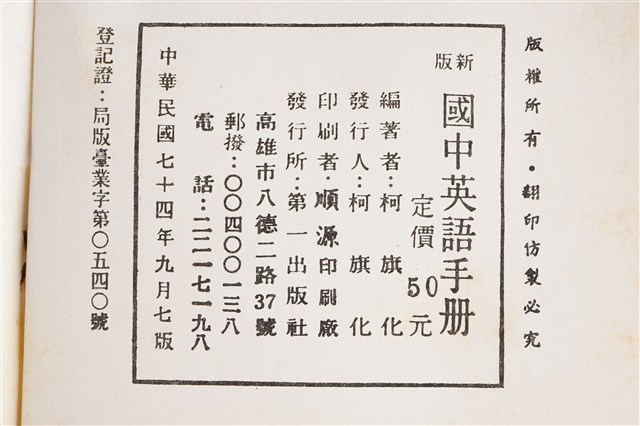 版權所有・翻印仿製必究
新版
國中英語手册
定價50元
編著者:柯旗化
發行人:柯旗化
印刷者:順源印刷廠
發行所:第一出版社
高雄市八德二路37號
郵撥:〇〇四〇〇一三八
電話:二二一七一九八
中華民國七十四年九月七版
登記證:局版臺業字第〇五四〇號